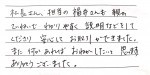 社長さん、担当の福井さんも親切
ていねいで、わかりやすく説明などをして
くださり安心してお取引ができました。
また何かあればお願いしたいと思います。
ありがとうございました。